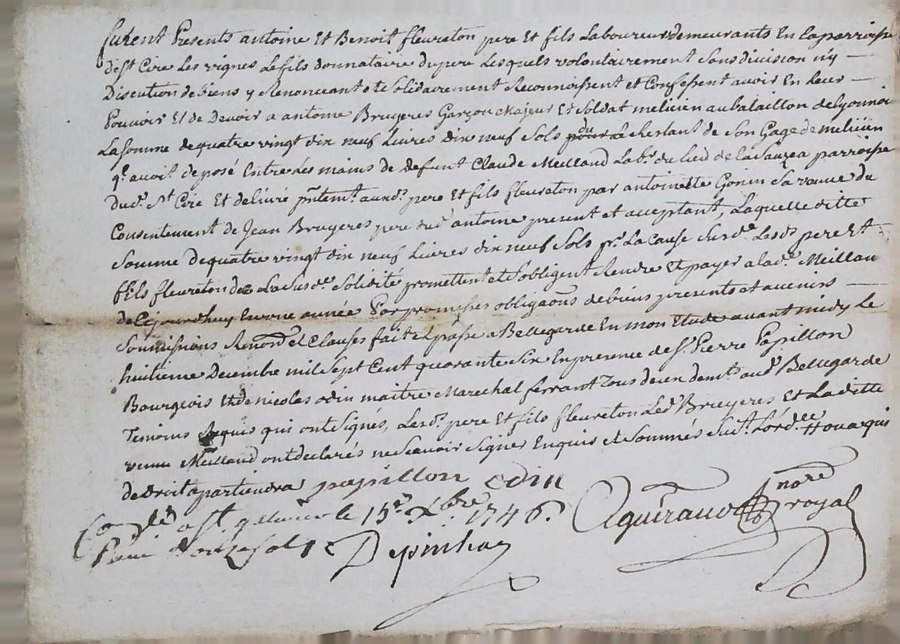 furent Presents antoine Et Benoit fleureton pere et fils Laboureurs demeurants En la parroisse
de st Cire Les vignes Le fils donnataire du pere Lesquels volontairement Sans division n'y
Discution de biens y Renonceants Solidairement Reconnoissent et Confessent avoir En Leur
Pouvoir Et de Devoir a antoine Bruyeres Garçon Majeur Et Soldat melicien au bataillon de Lyonnois
La Somme de quatre vingt dix neuf Livres Dix neuf Sols Restant de Son Gage de melicien
qu'il avoit de posé Entre Les mains de Deffunt Claude Meilland Labr. du Lieu de la Sauzea parroisse
dud. St Cire Et delivré pntemt. auxd. pere et fils fleureton par antoinette Gonin Sa vauve du
Consentement de Jean Bruyeres pere dud. antoine present et acceptant, Laquelle ditte
Somme de quatre vingt dix neuf Livres dix neuf Sols pr. La Cause Susde. Lesds pere Et
fils fleureton de La Susde. Solidité promettent et Sobligent Rendre Et payer a lad. Meilland
de Cejourdhuy En une année Par promesses obligaons de biens presents et avenirs
Soumissions Renons et Clauses fait et passe a Bellegarde En mon Etude avant midy Le
huitieme Decembre mil Sept Cent quarante Six En presence de Sr. Pierre Papillon
Bourgeois Et de nicolas odin maitre Marechal ferrant Tous deux demts. aud. Bellegarde
Temoins Requis qui ont Signés, Lesd. pere Et fils fleureton Led. Bruyeres Et Laditte
veuve Meilland ont declarés ne Scavoir Signer Enquis et Sommés Suivt. Lordce. a qui
de Droit apartiendra papillon odin
Conlé a St galmier le 15e Xbre 1746.
Depinhac
Aguiraud nore royal